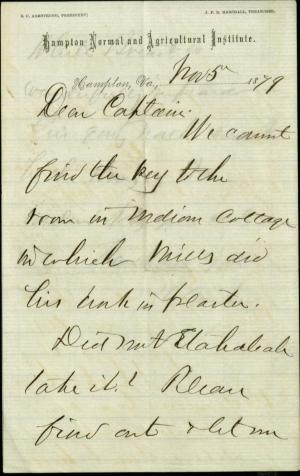 S. C. ARMSTRONG, PRESIDENT; J. F. B. MARSHALL, TREASURER.
Hampton Normal and Agricultural Institute.
Hampton, Va., Nov 5 1879
Dear Captain.
We cannot
find the key to the
room in Indian Cottage
in which Mills did
his work in plaster.
Did not Etahdleuh
take it? Please
find out & let me